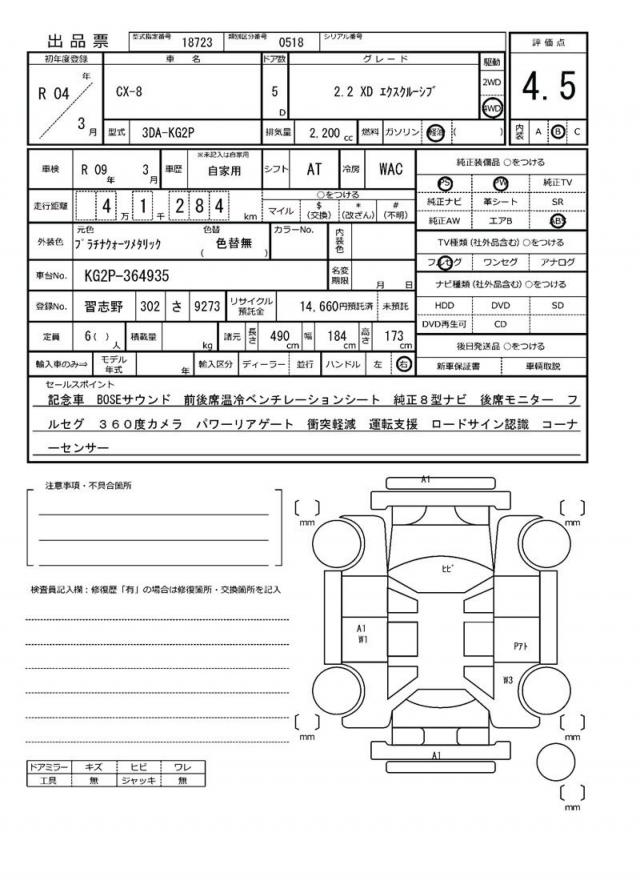 出品票 型式指定番号 18723 類別区分番号 0518 シリアル番号
初年度登録 車名 ドア数 グレード 駆動 評価点
R 04 年 3 月 CX-8 5 D 2.2 XD エクスクルーシブ 2WD 4WD 4.5
型式 3DA-KG2P 排気量 2,200 cc 燃料 ガソリン 軽油 ( ) 内装 A B C
車検 R 09 年 3 月 車歴 ※未記入は自家用 自家用 シフト AT 冷房 WAC 純正装備品 ○をつける
PS PW 純正TV
走行距離 4 万 1 千 2 8 4 km ○をつける
マイル $ (交換) * (改ざん) # (不明)
純正ナビ 革シート SR
純正AW エアB ABS
外装色 元色 プラチナクォーツメタリック 色替 ( 色替無 ) カラーNo. 内装色
TV種類 (社外品含む) ○をつける
フルセグ ワンセグ アナログ
車台No. KG2P-364935 名変期限 月 日
ナビ種類 (社外品含む) ○をつける
登録No. 習志野 302 さ 9273 リサイクル預託金 14,660円預託済 未預託
HDD DVD SD
DVD再生可 CD
定員 6( ) 人 積載量 kg 諸元 長さ 490 cm 幅 184 cm 高さ 173 cm
後日発送品 ○をつける
輸入車のみ⇒ モデル年式 年 輸入区分 ディーラー 並行 ハンドル 左 右 新車保証書 車輌取説
セールスポイント
記念車 BOSEサウンド 前後席温冷ベンチレーションシート 純正8型ナビ 後席モニター フ
ルセグ 360度カメラ パワーリアゲート 衝突軽減 運転支援 ロードサイン認識 コーナ
ーセンサー
注意事項・不具合箇所
A1
mm
mm
ヒビ
検査員記入欄：修復歴「有」の場合は修復箇所・交換箇所を記入
A1
W1
Pアト
W3
mm
mm
A1
ドアミラー キズ ヒビ ワレ
工具 無 ジャッキ 無
mm